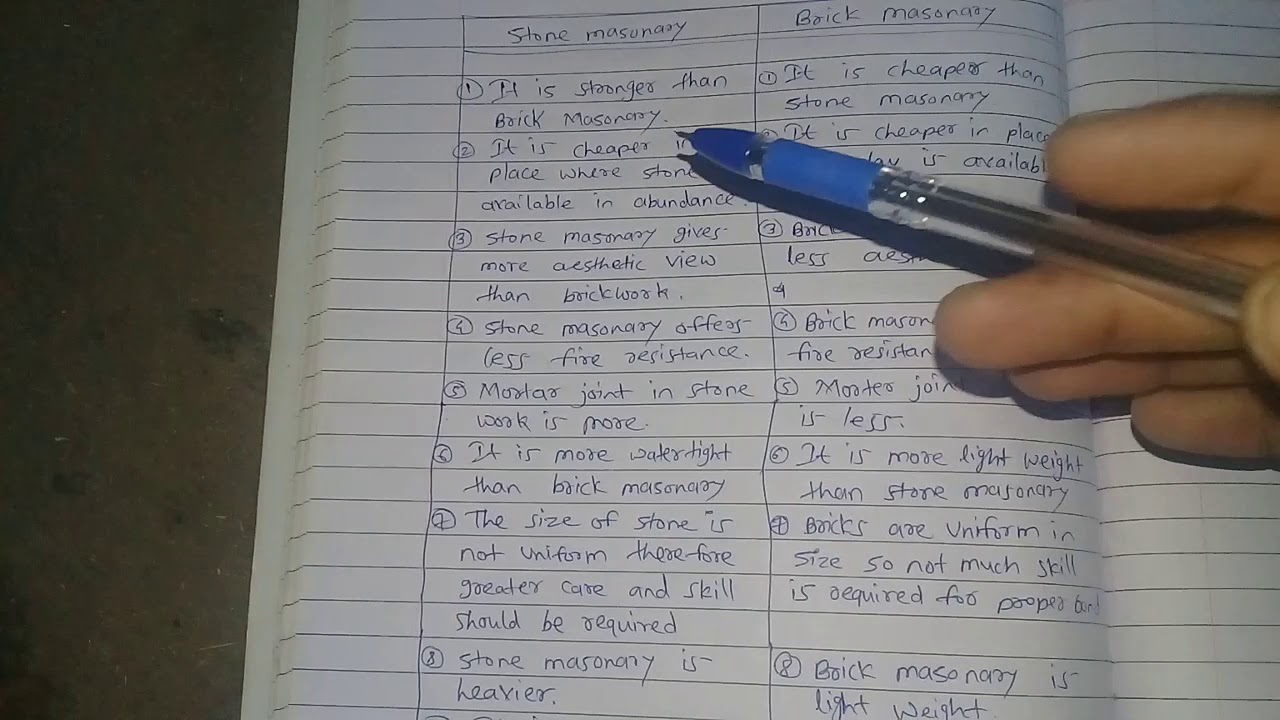 Stone masonary
① It is stronger than
Brick Masonary.
② It is cheaper
place where stone
available in abundance.
③ stone masonary gives
more aesthetic view
than brickwork.
④ stone masonary offers
less fire resistance.
⑤ Mortar joint in stone
work is more.
⑥ It is more watertight
than brick masonary
⑦ The size of stone is
not uniform therefore
greater care and skill
should be required
⑧ stone masonary is
heavier.
Brick masonary
① It is cheaper than
stone masonary
It is cheaper in place
is available
③
less
4
④ Brick
fire
⑤ Morter joint
is less.
⑥ It is more light weight
than stone masonary
⑦ Bricks are Uniform in
size so not much skill
is required for proper
⑧ Brick masonary is
light weight.